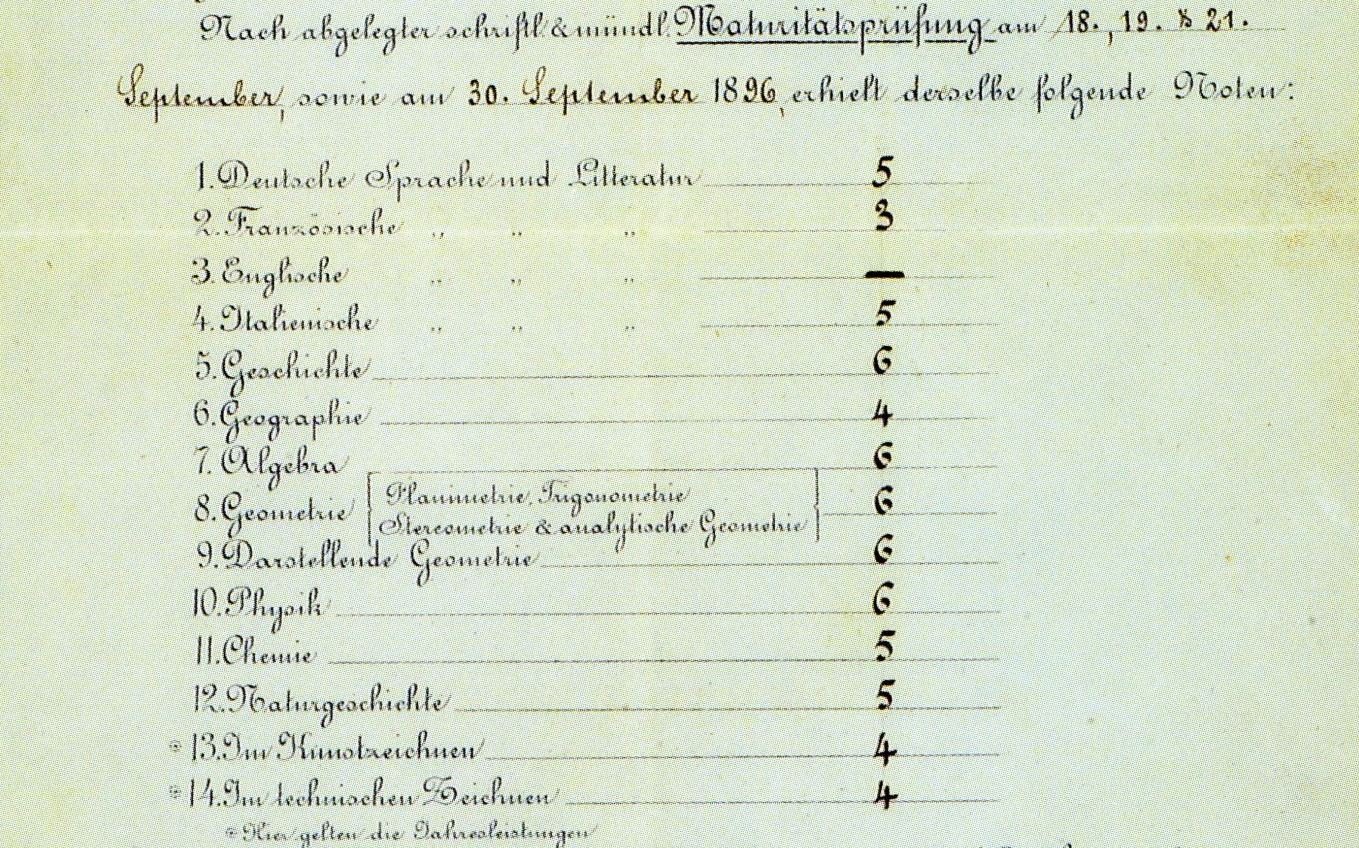 Nach abgelegter schriftl. & mündl. Maturitätsprüfung am 18., 19. & 21.
September, sowie am 30. September 1896, erhielt derselbe folgende Noten:
1. Deutsche Sprache und Litteratur 5
2. Französische „ „ „ 3
3. Englische „ „ „ —
4. Italienische „ „ „ 5
5. Geschichte 6
6. Geographie 4
7. Algebra 6
8. Geometrie { Planimetrie, Trigonometrie
Stereometrie & analytische Geometrie } 6
9. Darstellende Geometrie 6
10. Physik 6
11. Chemie 5
12. Naturgeschichte 5
* 13. Im Kunstzeichnen 4
* 14. Im technischen Zeichnen 4
* Hier gelten die Jahresleistungen